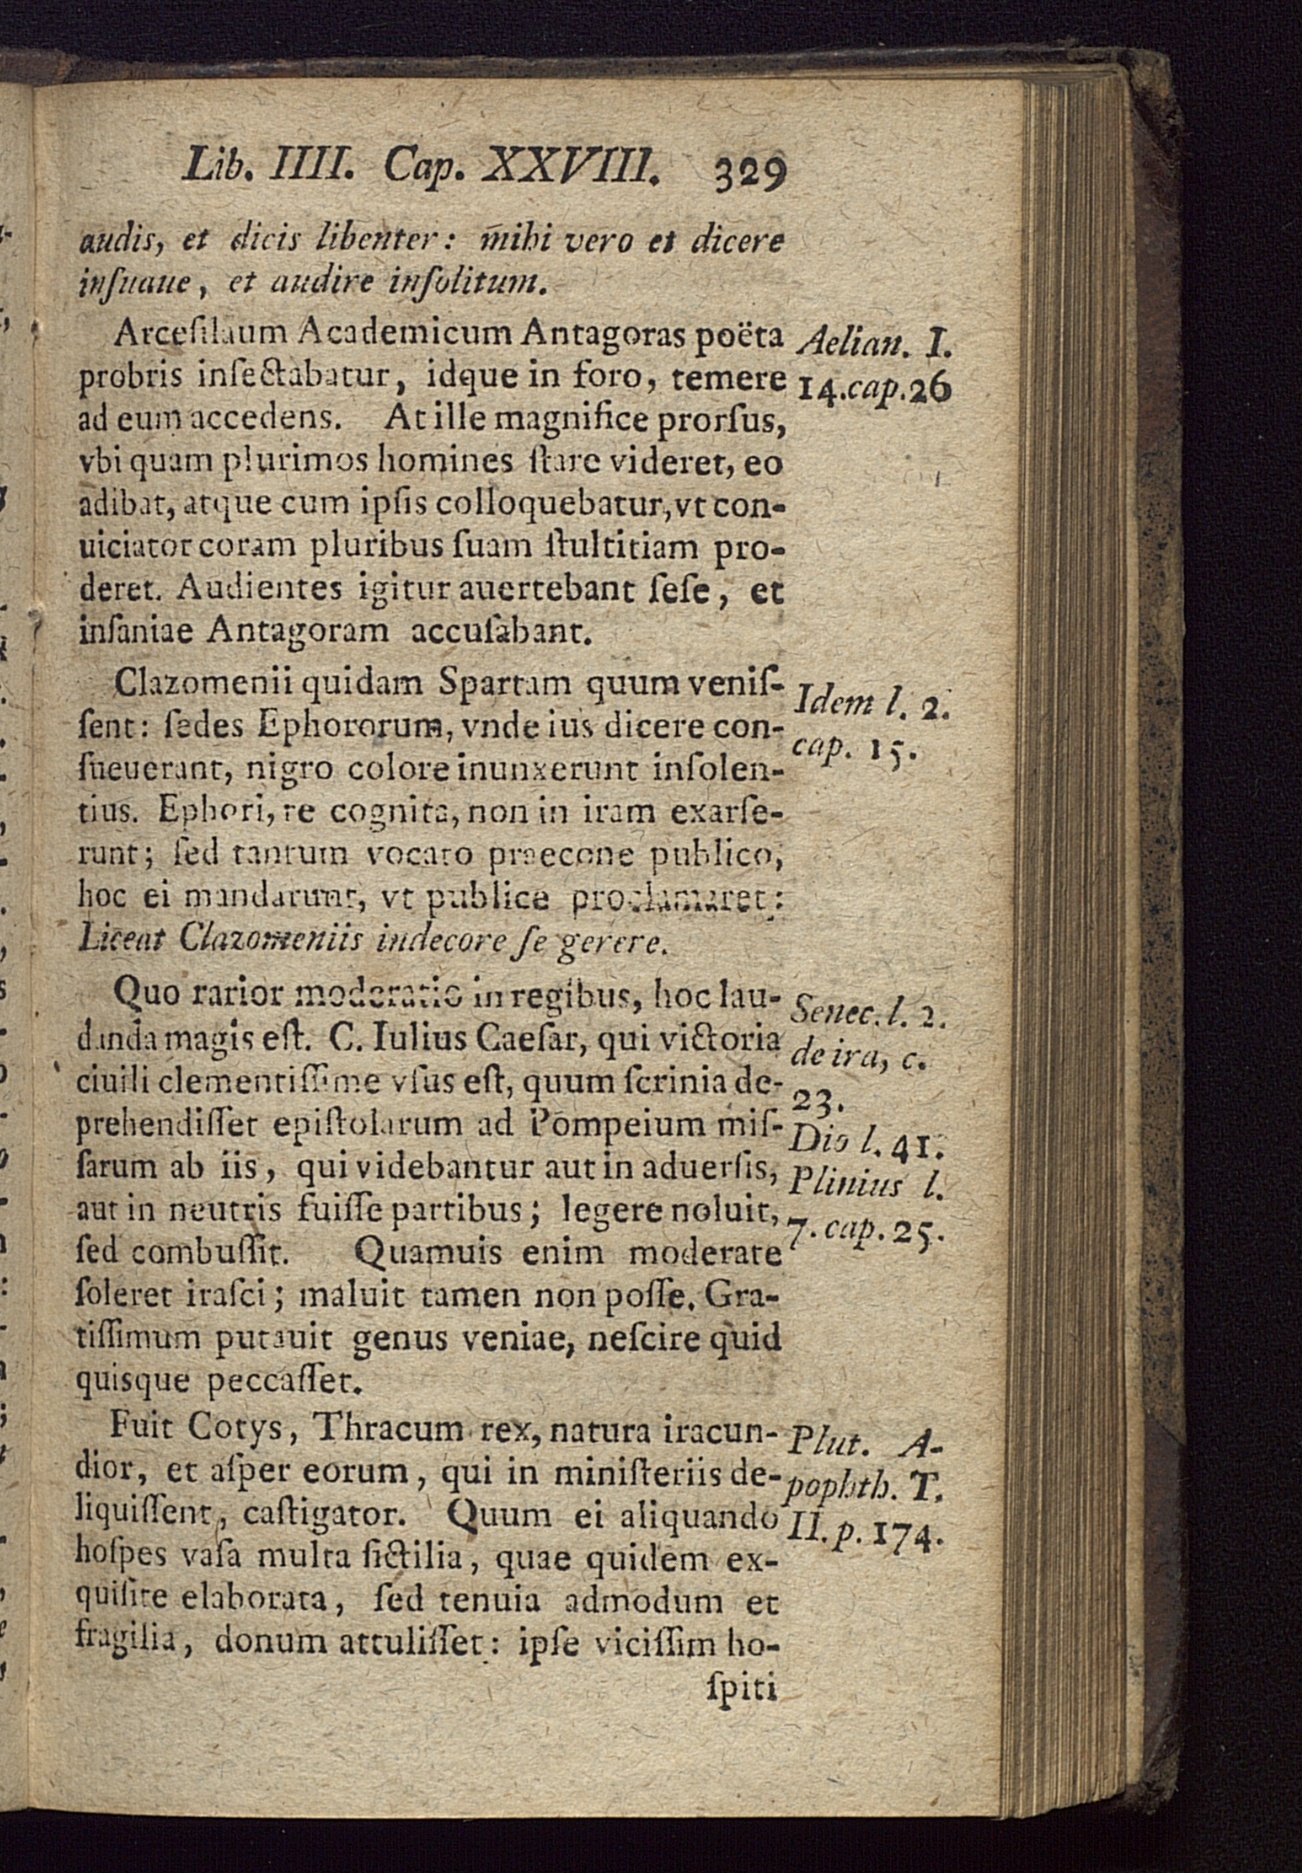 Lib. IIII. Cap. XXVIII. 329
audis, et dicis libenter: mihi vero et dicere
inſuaue, et audire inſolitum.
Arceſilaum Academicum Antagoras poëta
probris inſectabatur, idque in foro, temere
ad eum accedens. At ille magnifice prorſus,
vbi quam plurimos homines ſtare videret, eo
adibat, atque cum ipſis colloquebatur, vt con-
uiciator coram pluribus ſuam ſtultitiam pro-
deret. Audientes igitur auertebant ſeſe, et
inſaniae Antagoram accuſabant.
Aelian. I.
14. cap. 26
Clazomenii quidam Spartam quum veniſ-
ſent: ſedes Ephororum, vnde ius dicere con-
ſueuerant, nigro colore inunxerunt inſolen-
tius. Ephori, re cognita, non in iram exarſe-
runt; ſed tantum vocato praecone publico,
hoc ei mandarunt, vt publice proclamaret:
Liceat Clazomeniis indecore ſe gerere.
Idem l. 2.
cap. 15.
Quo rarior moderatio in regibus, hoc lau-
danda magis eſt. C. Iulius Caeſar, qui victoria
ciuili clementiſſime vſus eſt, quum ſcrinia de-
prehendiſſet epiſtolarum ad Pompeium miſ-
ſarum ab iis, qui videbantur aut in aduerſis,
aut in neutris fuiſſe partibus; legere noluit,
ſed combuſſit. Quamuis enim moderate
ſoleret iraſci; maluit tamen non poſſe. Gra-
tiſſimum putauit genus veniae, neſcire quid
quisque peccaſſet.
Senec. l. 2.
de ira, c.
23.
Dio l. 41.
Plinius l.
7. cap. 25.
Fuit Cotys, Thracum rex, natura iracun-
dior, et aſper eorum, qui in miniſteriis de-
liquiſſent, caſtigator. Quum ei aliquando
hoſpes vaſa multa fictilia, quae quidem ex-
quiſite elaborata, ſed tenuia admodum et
fragilia, donum attuliſſet: ipſe viciſſim ho-
Plut. A-
pophth. T.
II. p. 174.
ſpiti